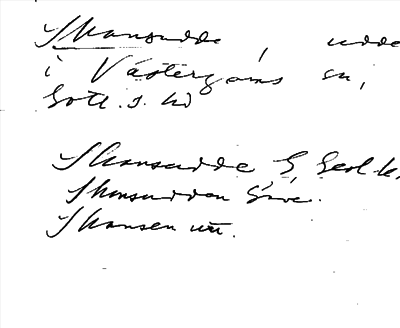 Skansudde, udde
i Västergarns sn,
Gotl. s. hd
Skansudde G, Geol k.
Skansudden Säve.
Skansen utt.